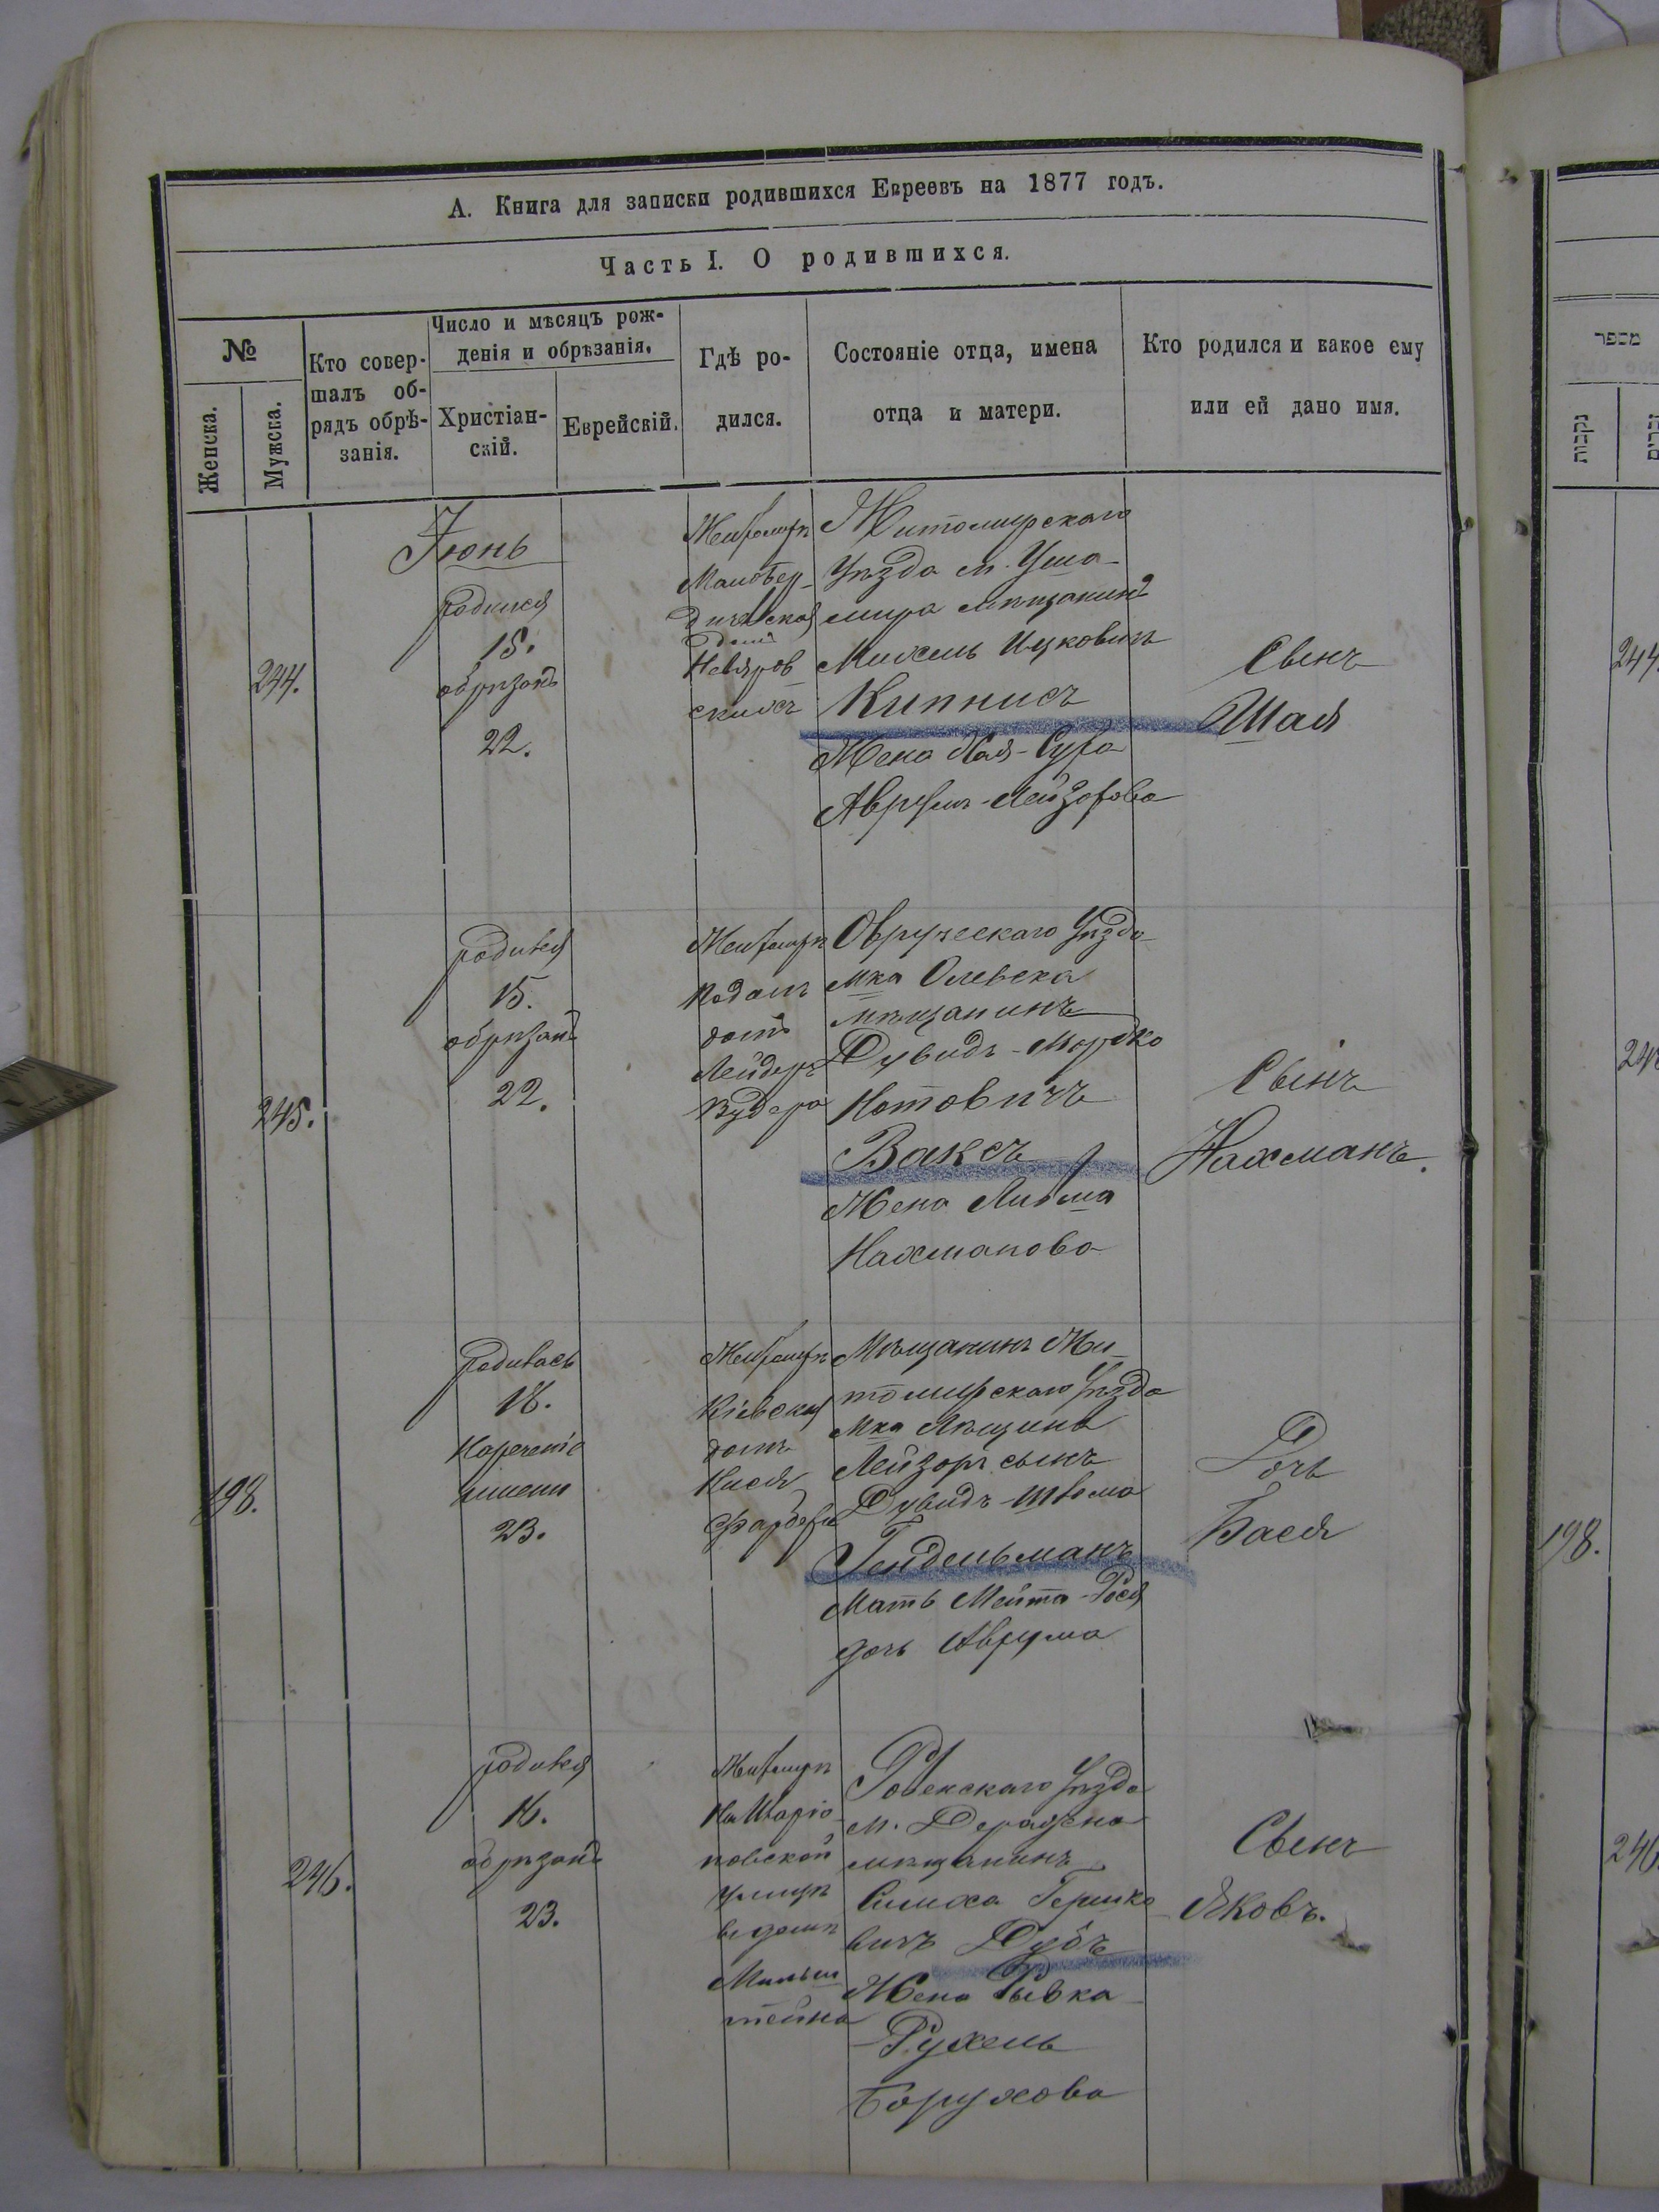 А. Книга для записки родившихся Евреевъ на 1877 годъ.
Часть I. О родившихся.
№
Женска.
Мужска.
Кто совер-
шалъ об-
рядъ обрѣ-
занія.
Число и мѣсяцъ рож-
денія и обрѣзанія.
Христіан-
скій.
Еврейскій.
Гдѣ ро-
дился.
Состояніе отца, имена
отца и матери.
Кто родился и какое ему
или ей дано имя.
Іюнь
244.
родился
15.
обрѣзанъ
22.
Житомиръ
Малобер-
дичевская
домъ
Житомирскаго
Уѣзда м. Уша-
мира мѣщанинъ
Михель Ицковичъ
Кипнисъ
Жена Хая-Сура
Аврумъ-Лейзорова
Сынъ
Шая
245.
родился
15.
обрѣзанъ
22.
Житомиръ
домъ
Овручскаго Уѣзда
мка Олевска
мѣщанинъ
Дувидъ-Мордко
Нотовичъ
Ваксъ
Жена
Нахманова
Сынъ
Нахманъ.
198.
родилась
16.
Нареченіе
имени
23.
Житомиръ
Кіевская
домъ
Мѣщанинъ Жи-
томирскаго Уѣзда
мка Лѣщина
Лейзоръ сынъ
Дувидъ-Шлема
Гендельманъ
Мать Мейта-Рося
дочь Аврума
Дочь
Бася
246.
родился
16.
обрѣзанъ
23.
Житомиръ
улицѣ
въ домѣ
Мильш
тейна
Ровенскаго Уѣзда
м. Деражна
мѣщанинъ
Симха Гершко-
вичъ Дубъ
Жена Рывка-
Рухель
Борухова
Сынъ
Яковъ.
מספר
נקבות
244.
198.
246.